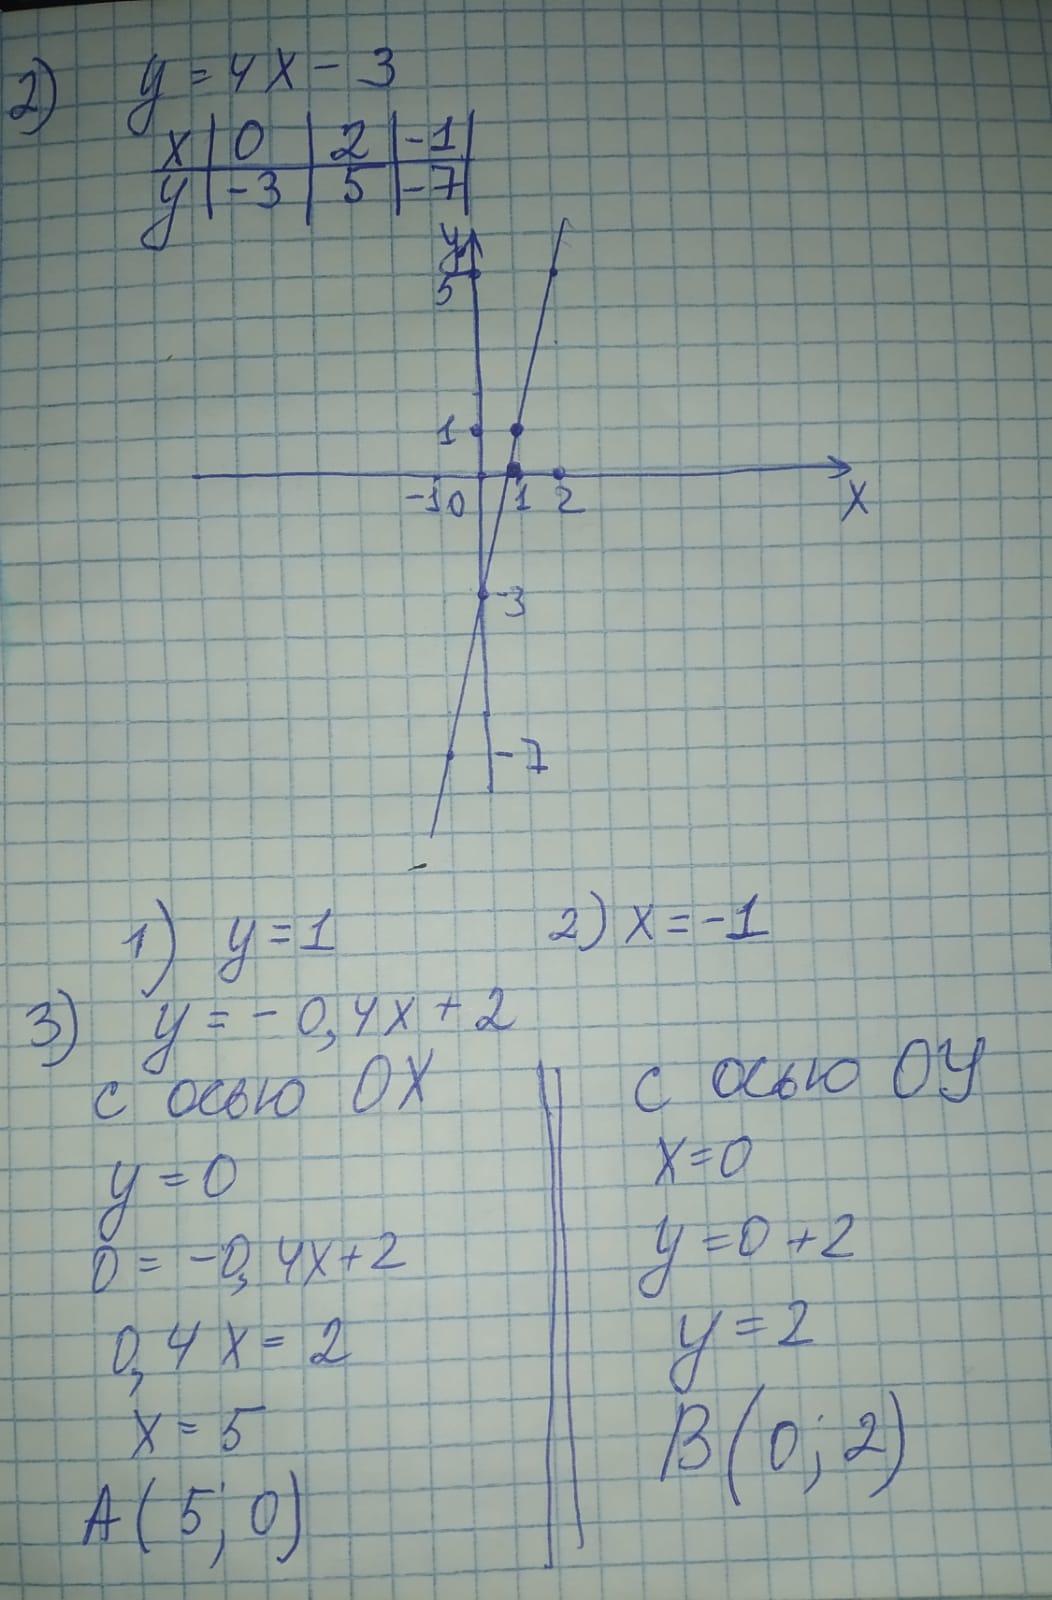 2) y = 4x - 3
x | 0 | 2 | -1 |
y | -3 | 5 | -7 |
y
5
1
-1 0 1 2
x
-3
-7
1) y = 1 2) x = -1
3) y = - 0,4x + 2
с осью OX
y = 0
0 = -0,4x + 2
0,4x = 2
x = 5
A(5; 0)
с осью OY
x = 0
y = 0 + 2
y = 2
B(0; 2)